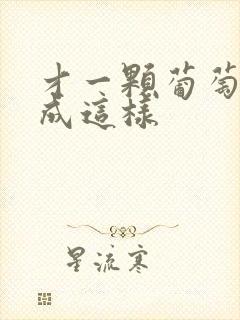 才一顆葡萄
成這樣
星流寒